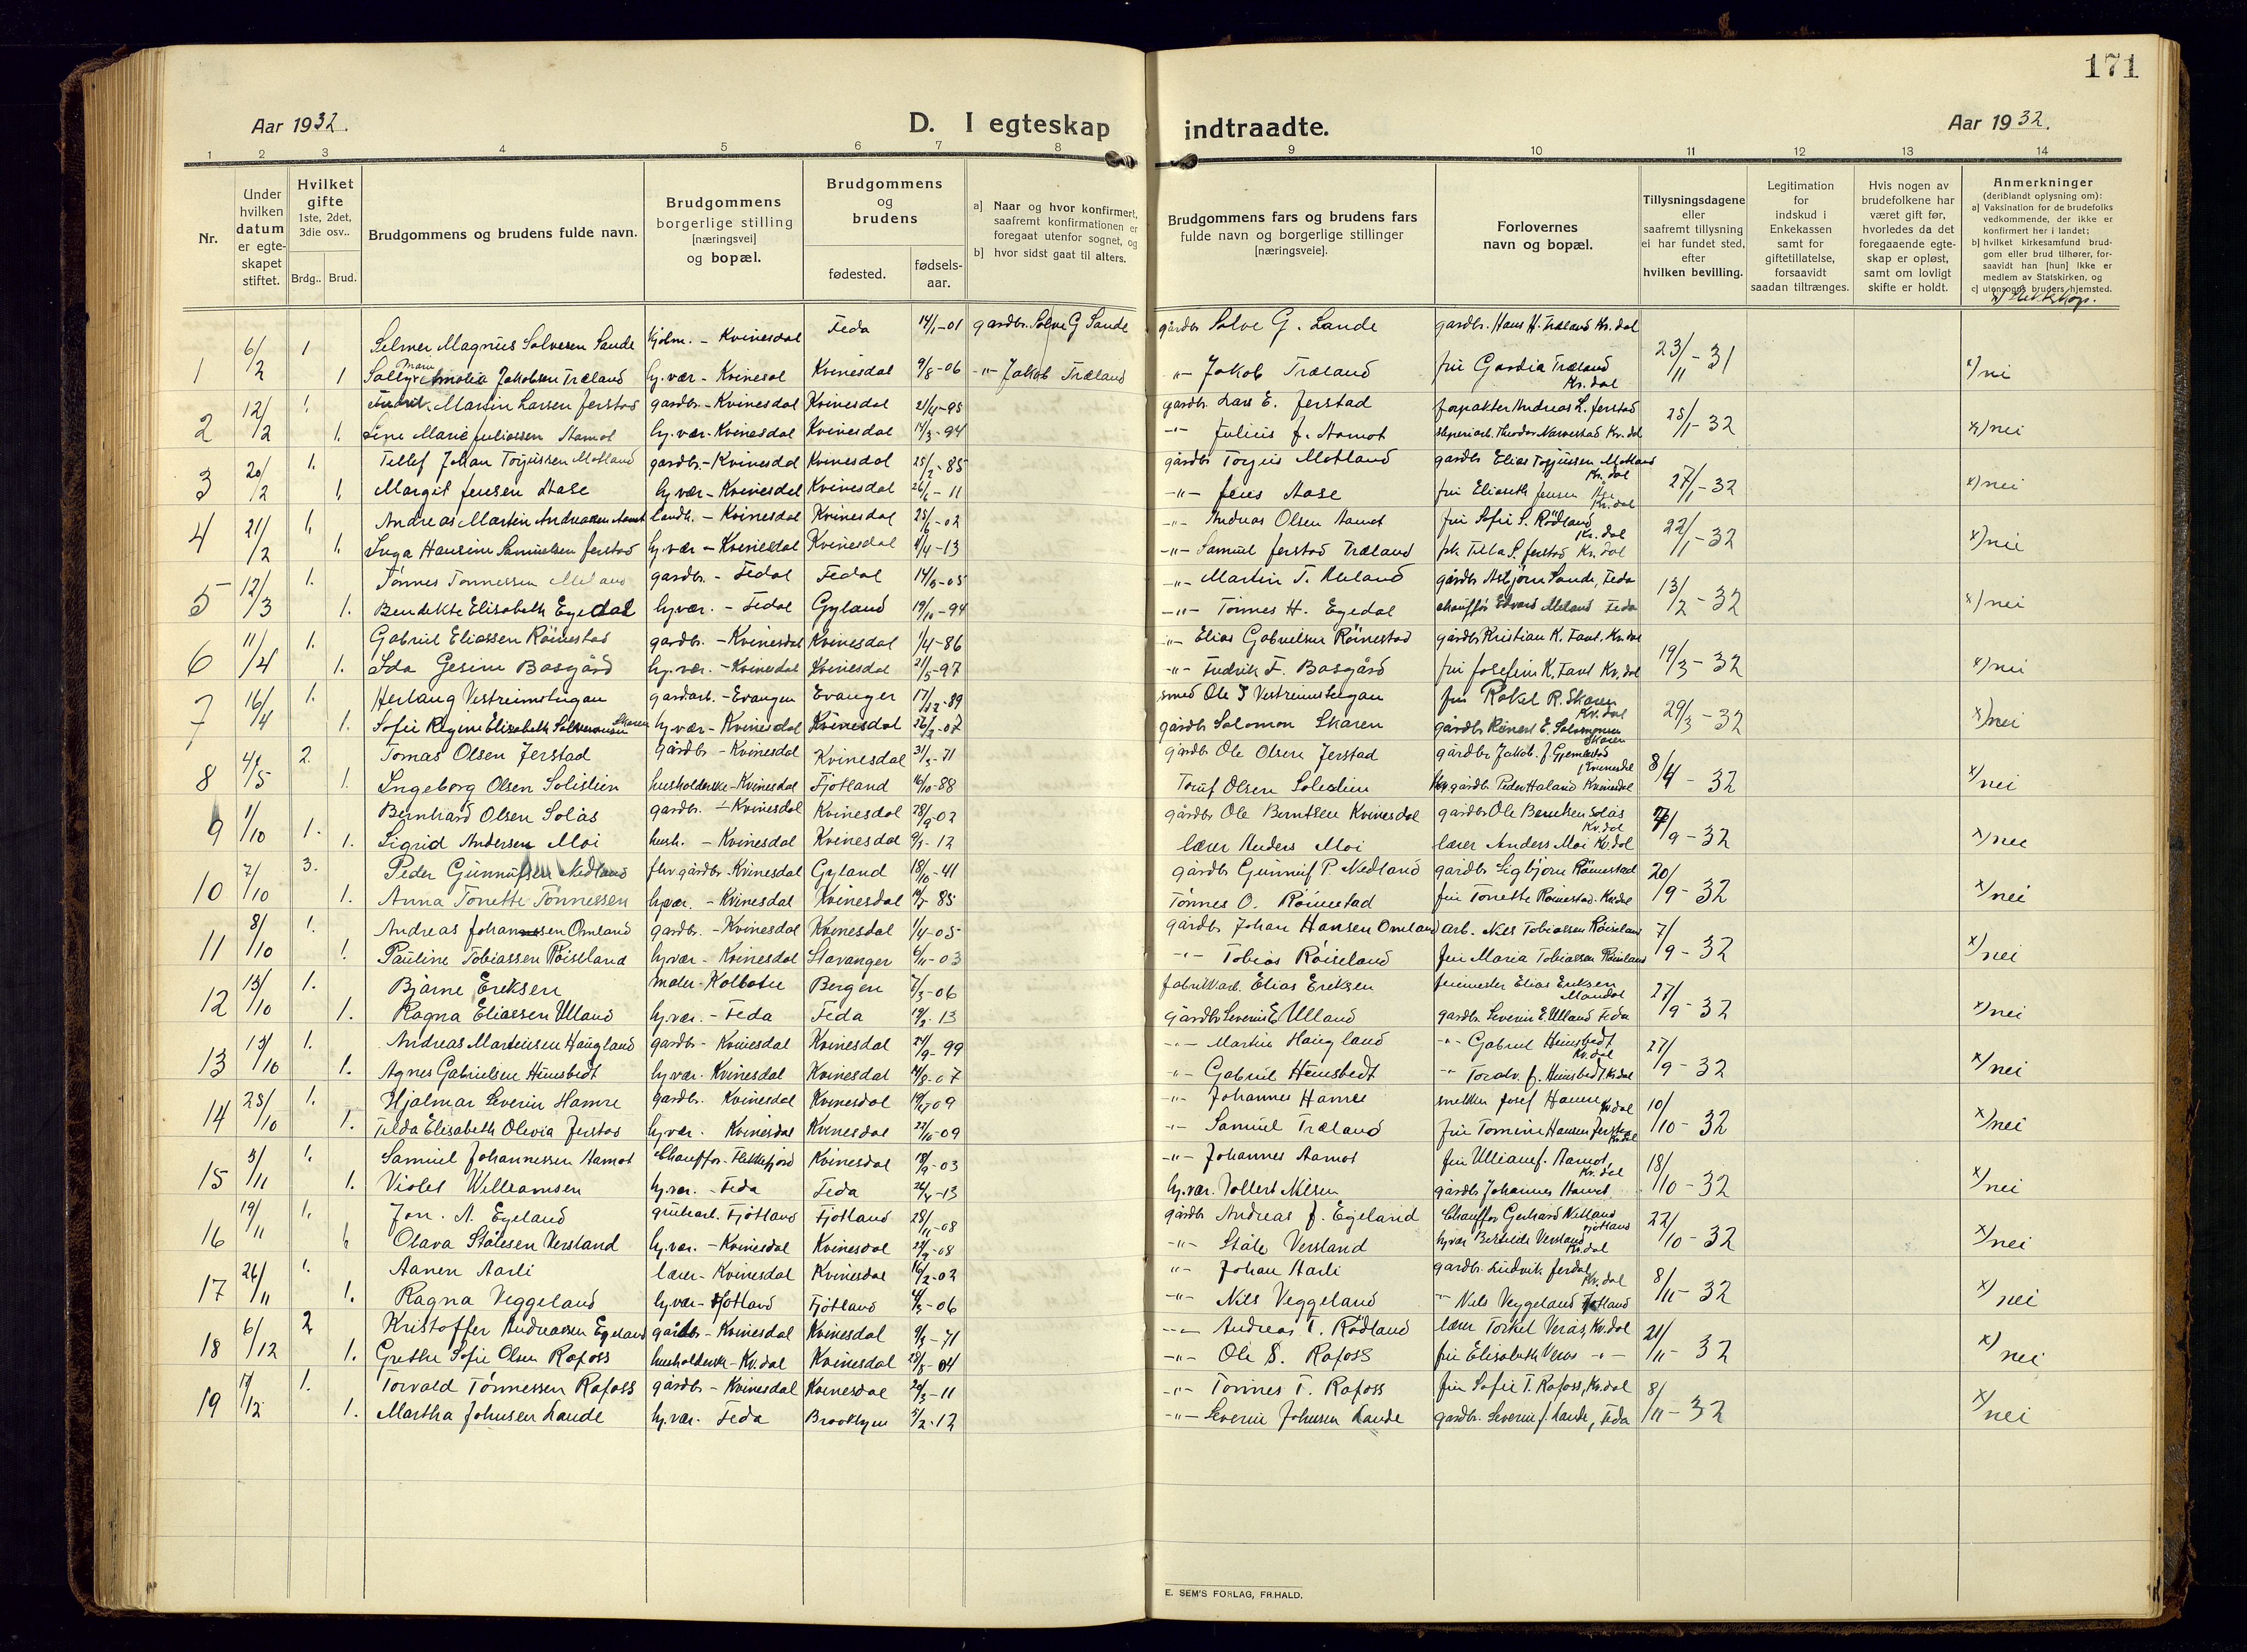 171
Aar 1932.
D. I egteskap indtraadte.
Aar 1932.
1 2 3 4 5 6 7 8 9 10 11 12 13 14
Nr.
Under hvilken datum er egteskapet stiftet.
Hvilket gifte 1ste, 2det, 3die osv..
Brdg.. Brud.
Brudgommens og brudens fulde navn.
Brudgommens borgerlige stilling [næringsvei] og bopæl.
Brudgommens og brudens
fødested. fødsels-aar.
a) Naar og hvor konfirmert, saafremt konfirmationen er foregaat utenfor sognet, og
b) hvor sidst gaat til alters.
Brudgommens fars og brudens fars fulde navn og borgerlige stillinger [næringsveie].
Forlovernes navn og bopæl.
Tillysningsdagene eller saafremt tillysning ei har fundet sted, efter hvilken bevilling.
Legitimation for indskud i Enkekassen samt for giftetillatelse, forsaavidt saadan tiltrænges.
Hvis nogen av brudefolkene har været gift før, hvorledes da det foregaaende egteskap er opløst, samt om lovligt skifte er holdt.
Anmerkninger (deriblandt oplysning om):
a) Vaksination for de brudefolks vedkommende, der ikke er konfirmert her i landet;
b) hvilket kirkesamfund brudgom eller brud tilhører, forsaavidt han [hun] ikke er medlem av Statskirken, og
c) utensogns bruders hjemsted.
x) Slektskap.
1 6/2 1 Selmer Magnus Solvesen Sande Kjølm. - Kvinesdal Feda 14/1-01 gardbr. Solve G Sande gårdbr Solve G. Sande gardbr. Hans H. Træland Kv. dal 23/11-31
1 Solly Marie Amalia Jakobsen Træland hj. vær - Kvinesdal Kvinesdal 9/8-06 -"- Jakob Træland "- Jakob Træland fru Gardia Træland Kv. dal x) nei
2 12/2 1. Martin Larsen Jerstad gardbr. - Kvinesdal Kvinesdal 21/4-95 gardbr. Lars E. Jerstad forpakter Andreas L. Jerstad 25/1-32
1. Line Marie Juliassen Aamot hj. vær - Kvinesdal Kvinesdal 14/3-94 -"- Julius J. Aamot Theodor Narvestad Kv. dal x) nei
3 20/2 1. Tellef Johan Torjussen Motland gardbr. - Kvinesdal Kvinesdal 25/2-85 gårdbr Torjus Motland gardbr Elias Torjussen Motland Kv. dal 27/1-32
1. Margit Jensen Aase hj. vær - Kvinesdal Kvinesdal 26/6-11 -"- Jens Aase fru Elisabeth Jensen Åse Kv. dal x) nei
4 21/2 1. Andreas Martin Andreassen Aamot landh. - Kvinesdal Kvinesdal 25/6-02 -"- Andreas Olsen Aamot fru Sofie S. Rödland Kv. dal 22/1-32
1. Inga Hansine Samuelsen Jerstad hj. vær - Kvinesdal Kvinesdal 4/4-13 -"- Samuel Jerstad Træland frk Tilla S. Jerstad Kv. dal x) nei
5 12/3 1. Tønnes Tønnessen Meland gardbr. - Fedal Fedal 14/3-05 -"- Martin T. Meland gårdbr Asbjørn Sande, Feda 13/2-32
1. Bendikte Elisabeth Egedal hj. vær. - Fedal Gyland 19/10-94 -"- Tönnes H. Egedal chauffør Edvard Meland Feda x) nei
6 11/4 1. Gabriel Eliassen Röinestad gardbr. - Kvinesdal Kvinesdal 1/4-86 -"- Elias Gabrielsen Röinestad gårdbr Kristian K. Faul. Kv. dal 19/3-32
1. Ida Gesine Basgård hj. vær. - Kvinesdal Kvinesdal 21/5-97 -"- Fredrik F. Basgård fru Josefine K. Faul Kv. dal x) nei
7 16/4 1. Herlaug Vestreimstugan gardarb. - Evangen Evanger 17/12-89 smed Ole I Vestreimstugan fru Rakel R. Skaren Kv. dal 29/3-32
1. Sofie Regine Elisabeth Skaren hj. vær - Kvinesdal Kvinesdal 26/2-07 gårdbr Salomon Skaren gårdbr Reinert E. Salomonsen Skaren x) nei
8 4/5 2. Tomas Olsen Jerstad Gårdbr. - Kvinesdal Kvinesdal 31/3-71 gårdbr Ole Olsen Jerstad gårdbr Jakob J. Gjemlestad Kvinesdal 8/4-32
1. Ingeborg Olsen Solislien husholderske - Kvinesdal Fjotland 16/10-88 Toruf Olsen Soleslien gårdbr Peder Haland Kvinesdal x) nei
9 1/10 1. Bernhard Olsen Solås gardbr. - Kvinesdal Kvinesdal 28/9-02 gårdbr Ole Berntsen Kvinesdal gardbr Ole Berntsen Solås Kv. dal 7/9-32
1. Sigrid Andersen Moi hush. - Kvinesdal Kvinesdal 9/1-12 lærer Anders Moi lærer Anders Moi Kv. dal x) nei
10 7/10 3. Peder Gunnufsen Nedland fhv gårdbr. - Kvinesdal Gyland 18/10-41 gårdbr Gunnuf P. Nedland gardbr Sigbjørn Röinestad 20/9-32
1. Anna Tonette Tönnessen hj vær. - Kvinesdal Kvinesdal 85 Tönnes O. Röinestad fru Tonette Röinestad. Kv. dal x) nei
11 8/10 1. Andreas Johansen Omland gardbr. - Kvinesdal Kvinesdal 1/4-05 gårdbr Johan Hansen Omland arb. Nils Tobiassen Röiseland 7/9-32
1. Pauline Tobiassen Röiseland hj. vær - Kvinesdal Stavanger 6/11-03 -"- Tobias Röiseland fru Maria Tobiassen Röiseland x) nei
12 13/10 1. Bjarne Eriksen maler - Kolbotn Bergen 7/3-06 fabrikkarb. Elias Eriksen Elias Eriksen Mandal 27/9-32
1. Ragna Eliassen Ulland hj. vær. - Feda Feda 19/3-13 gårdbr Severin E. Ulland gardbr. Severin E. Ulland Feda x) nei
13 15/10 1. Andreas Martinsen Haugland gardbr - Kvinesdal Kvinesdal 24/9-99 -"- Martin Haugland -"- Gabriel Heimsbedt Kv. dal 27/9-32
1. Agnes Gabrielsen Heimsbedt hj. vær. Kvinesdal Kvinesdal 14/8-07 -"- Gabriel Heimsbedt -"- Toralv. J. Heimsbedt Kv. dal x) nei
14 25/10 1. Hjalmar Severin Hamre gardbr. Kvinesdal Kvinesdal 09 -"- Johannes Hamre snekker Josef Hamre Kv. dal 10/10-32
1. Tilda Elisabeth Olevia Jerstad hj. vær. Kvinesdal Kvinesdal 22/10-09 -"- Samuel Træland fru Tomine Hansen Jerstad Kv. dal x) nei
15 5/11 1. Samuel Johannessen Aamot Chauffør - Flekkefjord Kvinesdal 03 -"- Johannes Aamot fru Ulliane J. Aamot, Kv. dal 18/10-32
1. Violet Williamsen hj. vær. - Feda Feda 13 hj. vær. Vollert Nilsen gårdbr Johannes Aamot x) nei
16 19/11 1. Jon. A. Egeland grubearb. Fjotland Fjotland 28/11-08 gårdbr Andreas J. Egeland Chauffør Gerhard Netland Fjotland 22/10-32
1. Olava Stålesen Versland hj. vær. - Kvinesdal Kvinesdal 08 -"- Ståle Versland hj. vær Versland Kv. dal x) nei
17 26/11 1. Aanen Aarli lærer - Kvinesdal Kvinesdal 16/2-02 -"- Johan Aarli gardbr. Ludvik Jerdal Kv. dal 8/11-32
1. Ragna Veggeland hj. vær - Fjotland Fjotland 4/3-06 -"- Nils Veggeland -"- Nils Veggeland Fjotland x) nei
18 6/12 2 Kristoffer Andreassen Egeland gardbr - Kvinesdal Kvinesdal 9/3-71 -"- Andreas T. Rödland lærer Torkel Verås, Kv. dal 21/11-32
1. Grethe Sofie Olsen Rafoss husholderske - Kv. dal Kvinesdal 04 -"- Ole S. Rafoss fru Elisabeth Verås -"- x) nei
19 17/12 1. Torvald Tønnessen Rafoss gårdbr - Kvinesdal Kvinesdal 24/3-11 -"- Tönnes T. Rafoss fru Sofie T. Rafoss, Kv. dal 8/11-32
1. Martha Johnsen Lande hj. vær. Feda Brooklyn 5/2-12 -"- Severin Johnsen Lande gardbr. Severin J. Lande, Feda x) nei
E. SEM'S FORLAG, FR.HALD.